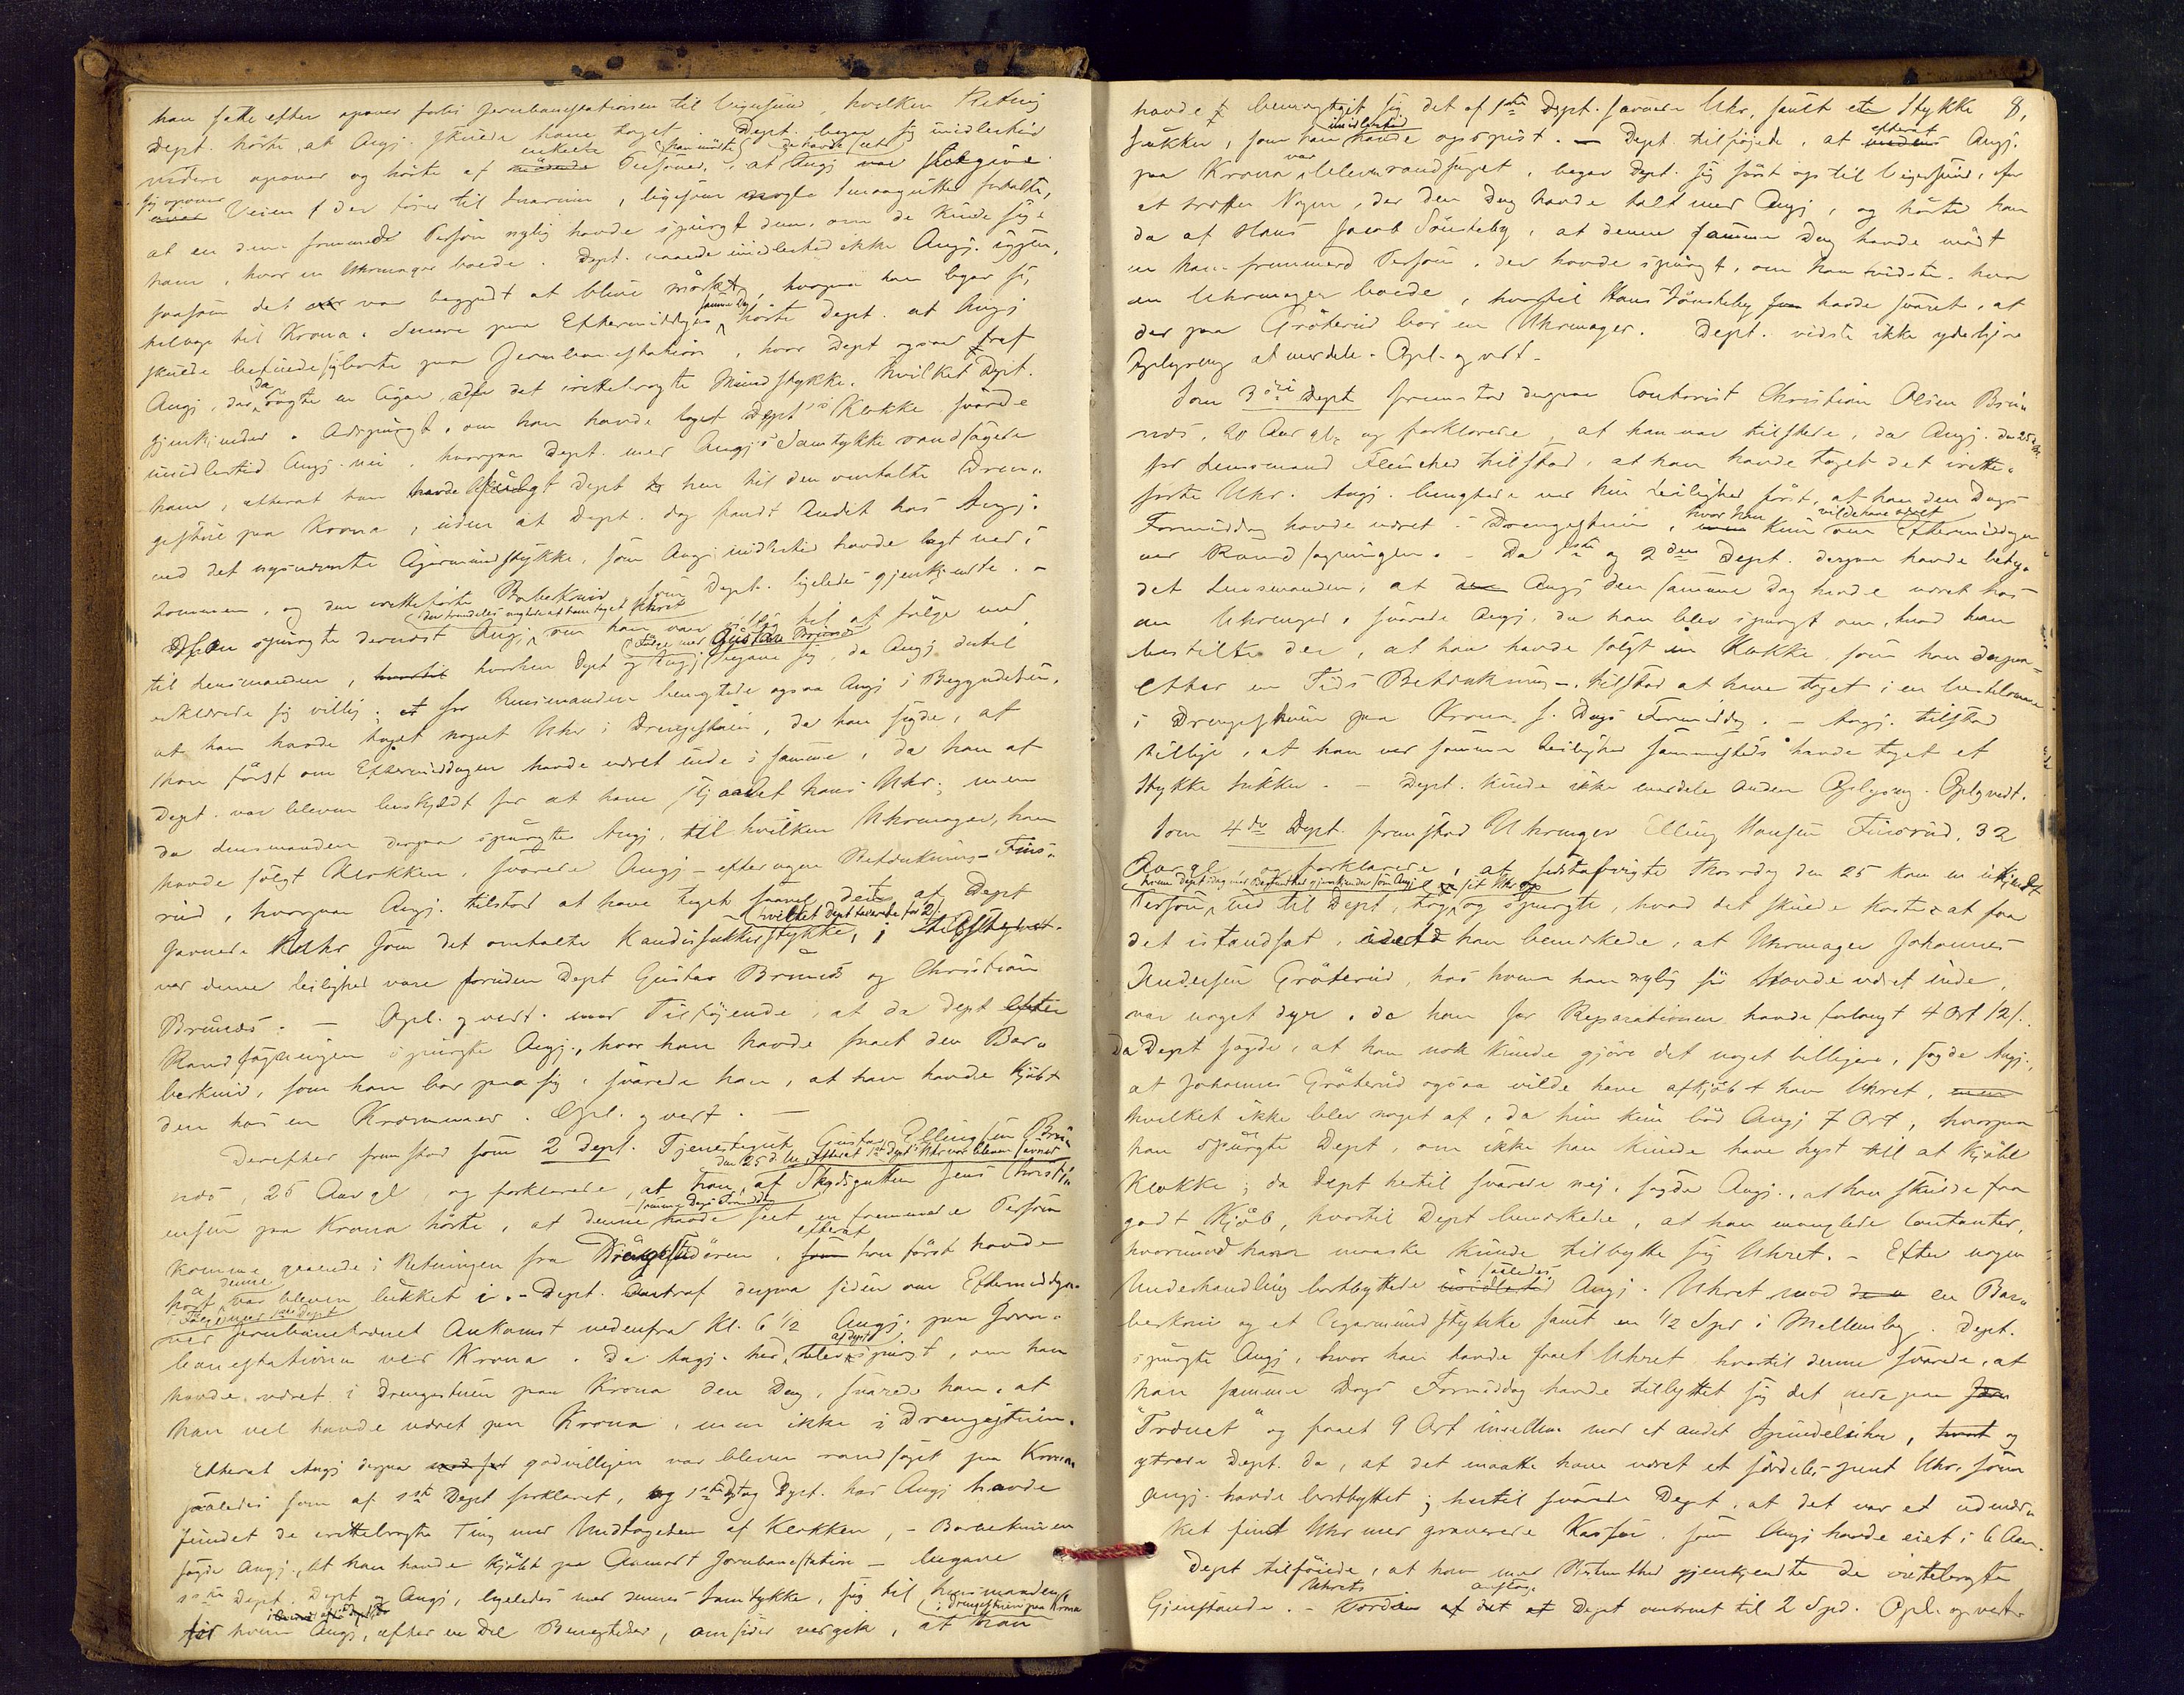 han satte efter opover forbi Jernbanestationen til Vigersund, hvilken Retning
Dept. hørte, at Angj. skulde have taget. Dept. begav sig imidlertid
videre opover og hørte af enkelte Personer, han mødte, at Angj. skulde have begivet
sig opover Veien, der fører til Snarum, ligesom nogle Smaagutter fortalte,
at en dem fremmed Person nylig havde spurgt dem, om de kunde sige
ham, hvor en Uhrmager boede. Dept. naaede imidlertid ikke Angj. igjen,
saasom det var begyndt at blive mørkt, hvorpaa han begav sig
tilbage til Krona. Senere paa Eftermiddagen samme Dag hørte Dept. at Angj
skulde befinde sig borte paa Jernbanestationen, hvor Dept ogsaa traf
Angj, der da røgte en Cigar af det irettebragte Mundstykke, hvilket Dept.
gjenkjender. Adspurgt, om han havde taget Dept's Klokke svarede
imidlertid Angj. nei, hvorpaa Dept. med Angj's Samtykke randsagede
ham, efterat han havde fulgt Dept hen til den omtalte Dren-
gestue paa Krona, uden at Dept. dog fandt Andet hos Angj.
end det nysnævnte Cigarmundstykke, som Angj. imidlertid havde lagt ned i
Lommen, og den iretteførte Barberkniv, som Dept. ligeledes gjenkjendte. -
Han spurgte dernæst Angj, der fremdeles negtede at have taget Uhret, om han var villig til at følge med
til Lensmanden, hvorhen Dept og Angj i Følge med Gustav Brunæs begave sig, da Angj dertil
erklærede sig villig; for Lensmanden benegtede ogsaa Angj i Begyndelsen,
at han havde taget noget Uhr i Drengestuen, da han sagde, at
han først om Eftermiddagen havde været inde i samme, da han af
Dept. var bleven beskyldt for at have stjaalet hans Uhr; men
da Lensmanden derpaa spurgte Angj, til hvilken Uhrmager, han
havde solgt Klokken, svarede Angj - efter nogen Betænkning - Fins-
rud, hvorpaa Angj. tilstod at have taget saavel det af Dept
savnede Uhr som det omtalte Kandissukkerstykke, hvilket Dept taxerede for 2 /. Tilstede
ved denne Leilighed vare foruden Dept Gustav Brunæs og Christian
Brunæs. - Opl. og vedt. med Tilføjende, at da Dept efter
Randsagningen spurgte Angj., hvor han havde faaet den Bar-
berkniv, som han bar paa sig, svarede han, at han havde kjøbt
den hos en Kræmmer. Opl. og vedt. -
Derefter fremstod som 2 Dept. Tjenestegut Gustav Ellingsen Bru-
næs, 25 Aar gl. og forklarede, at han, den 25 d. M. efterat 1ste Dept's Uhr var bleven savnet, af Skydsgutten Jens Christi-
ensen paa Krona hørte, at denne samme Dags Formiddag havde seet en fremmed Person
komme gaaende i Retningen fra Drengestuedøren, efterat han først havde
hørt, at denne var bleven lukket i. - Dept. traf derpaa siden om Eftermiddagen
i Følge med 1ste Dept ved Jernbanetoget Ankomst nedenfra Kl. 6 1/2 Angj. paa Jern-
banestationen ved Krona. Da Angj. her blev af Dept. spurgt, om han
havde været i Drengestuen paa Krona den Dag, svarede han, at
han vel havde været paa Krona, men ikke i Drengestuen.
Efterat Angj derpaa godvilligen var bleven randsaget paa Krona
saaledes som af 1ste Dept forklaret, og 1ste Dept. hos Angj havde
fundet de irettebragte Ting med Undtagelse af Klokken, - Barberkniven
sagde Angj., at han havde kjøbt paa Aamodt Jernbanestation - begave
1ste Dept, Dept og Angj, ligeledes med dennes Samtykke, sig til Lensmanden,
for hvem Angj, efter en Del Benegtelser, omsider vedgik, at han i Drengestuen paa Krona
8,
havde bemægtiget sig det af 1ste Dept. savnede Uhr, samt et Stykke
Sukker, som han imidlertid havde opspist. - Dept. tilføjede, at efterat Angj.
paa Krona var bleven randsaget, begav Dept. sig først op til Vigersund, for
at træffe Nogen, der den Dag havde talt med Angj, og hørte han
da af Hans Jacob Sønsteby, at denne samme Dag havde mødt
en ham fremmed Person, der havde spurgt, om han vidste, hvor
en Uhrmager boede, hvortil Hans Sønsteby havde svaret, at
der paa Gröterud bor en Uhrmager. Dept. vidste ikke yderligere
Oplysning at meddele. Opl. og vedt. -
Som 3die Dept fremstod derpaa Contorist Christian Olsen Bru-
næs, 20 Aar gl. og forklarede, at han var tilstede, da Angj. den 25 d. M.
for Lensmand Fleischer tilstod, at han havde taget det irette-
førte Uhr. Angj. benegtede ved hin Leilighed først, at han den Dags
Formiddag havde været i Drengestuen, hvor han kun vilde have været om Eftermiddagen
ved Randsagningen. - Da 1ste og 2den Dept. derpaa havde bety-
det Lensmanden, at Angj den samme Dag havde været hos
en Uhrmager, svarede Angj, da han blev spurgt om, hvad han
bestilte der, at han havde solgt en Klokke, som han derpaa -
efter en Tids Betænkning -, tilstod at have taget i en Vestelomme
i Drengestuen paa Krona s. Dags Formiddag. - Angj. tilstod
tillige, at han ved samme Leilighed sammesteds havde taget et
Stykke Sukker. - Dept. kunde ikke meddele anden Oplysning. Opl. og vedt.
Som 4de Dept. fremstod Uhrmager Elling Hansen Finsrud, 32
Aar gl. og forklarede, at sidstafvigte Thorsdag den 25 kom en ukjendt
Person, hvem Dept. idag med Bestemthed gjenkjender som Angj, ind til Dept, tog op sit Uhr og spurgte, hvad det skulde koste at faa
det istandsat, idet han bemærkede, at Uhrmager Johannes
Andersen Gröterud, hos hvem han nylig før havde været inde,
var noget dyr, da han for Reparationen havde forlangt 4 Ort 12 /.
Da Dept sagde, at han nok kunde gjøre det noget billigere, sagde Angj.,
at Johannes Gröterud ogsaa vilde have afkjøbt ham Uhret,
hvilket ikke blev noget af, da hin kun bød Angj 7 Ort, hvorpaa
han spurgte Dept, om ikke han kunde have Lyst til at kjøbe
Klokke; da Dept hertil svarede nej, sagde Angj., at han skulde faa
godt Kjøb, hvortil Dept bemærkede, at han manglede Contanter,
hvorimod han maaske kunde tilbytte sig Uhret. - Efter nogen
Underhandling bortbyttede saaledes Angj. Uhret mod en Bar-
berkniv og et Cigarmundstykke samt en 1/2 Spd i Mellemlag. Dept.
spurgte Angj, hvor han havde faaet Uhret hvortil denne svarede, at
han samme Dags Formiddag havde tilbyttet sig det nede paa
"Trænet" og faaet 9 Ort imellem mod et andet Spindeluhr, og
ytrede Dept. da, at det maatte have været et særdeles pent Uhr, som
Angj. havde bortbyttet; hertil svarede Dept, at det var et udmær-
ket fint Uhr med graverede Kasser, som Angj havde eiet i 6 Aar.
Dept tilføiede, at han med Bestemthed gjenkjendte de irettebragte
Gjenstande. - Uhrets Værdi ansloges af Dept omtrent til 2 Spd. Opl. og vedt.